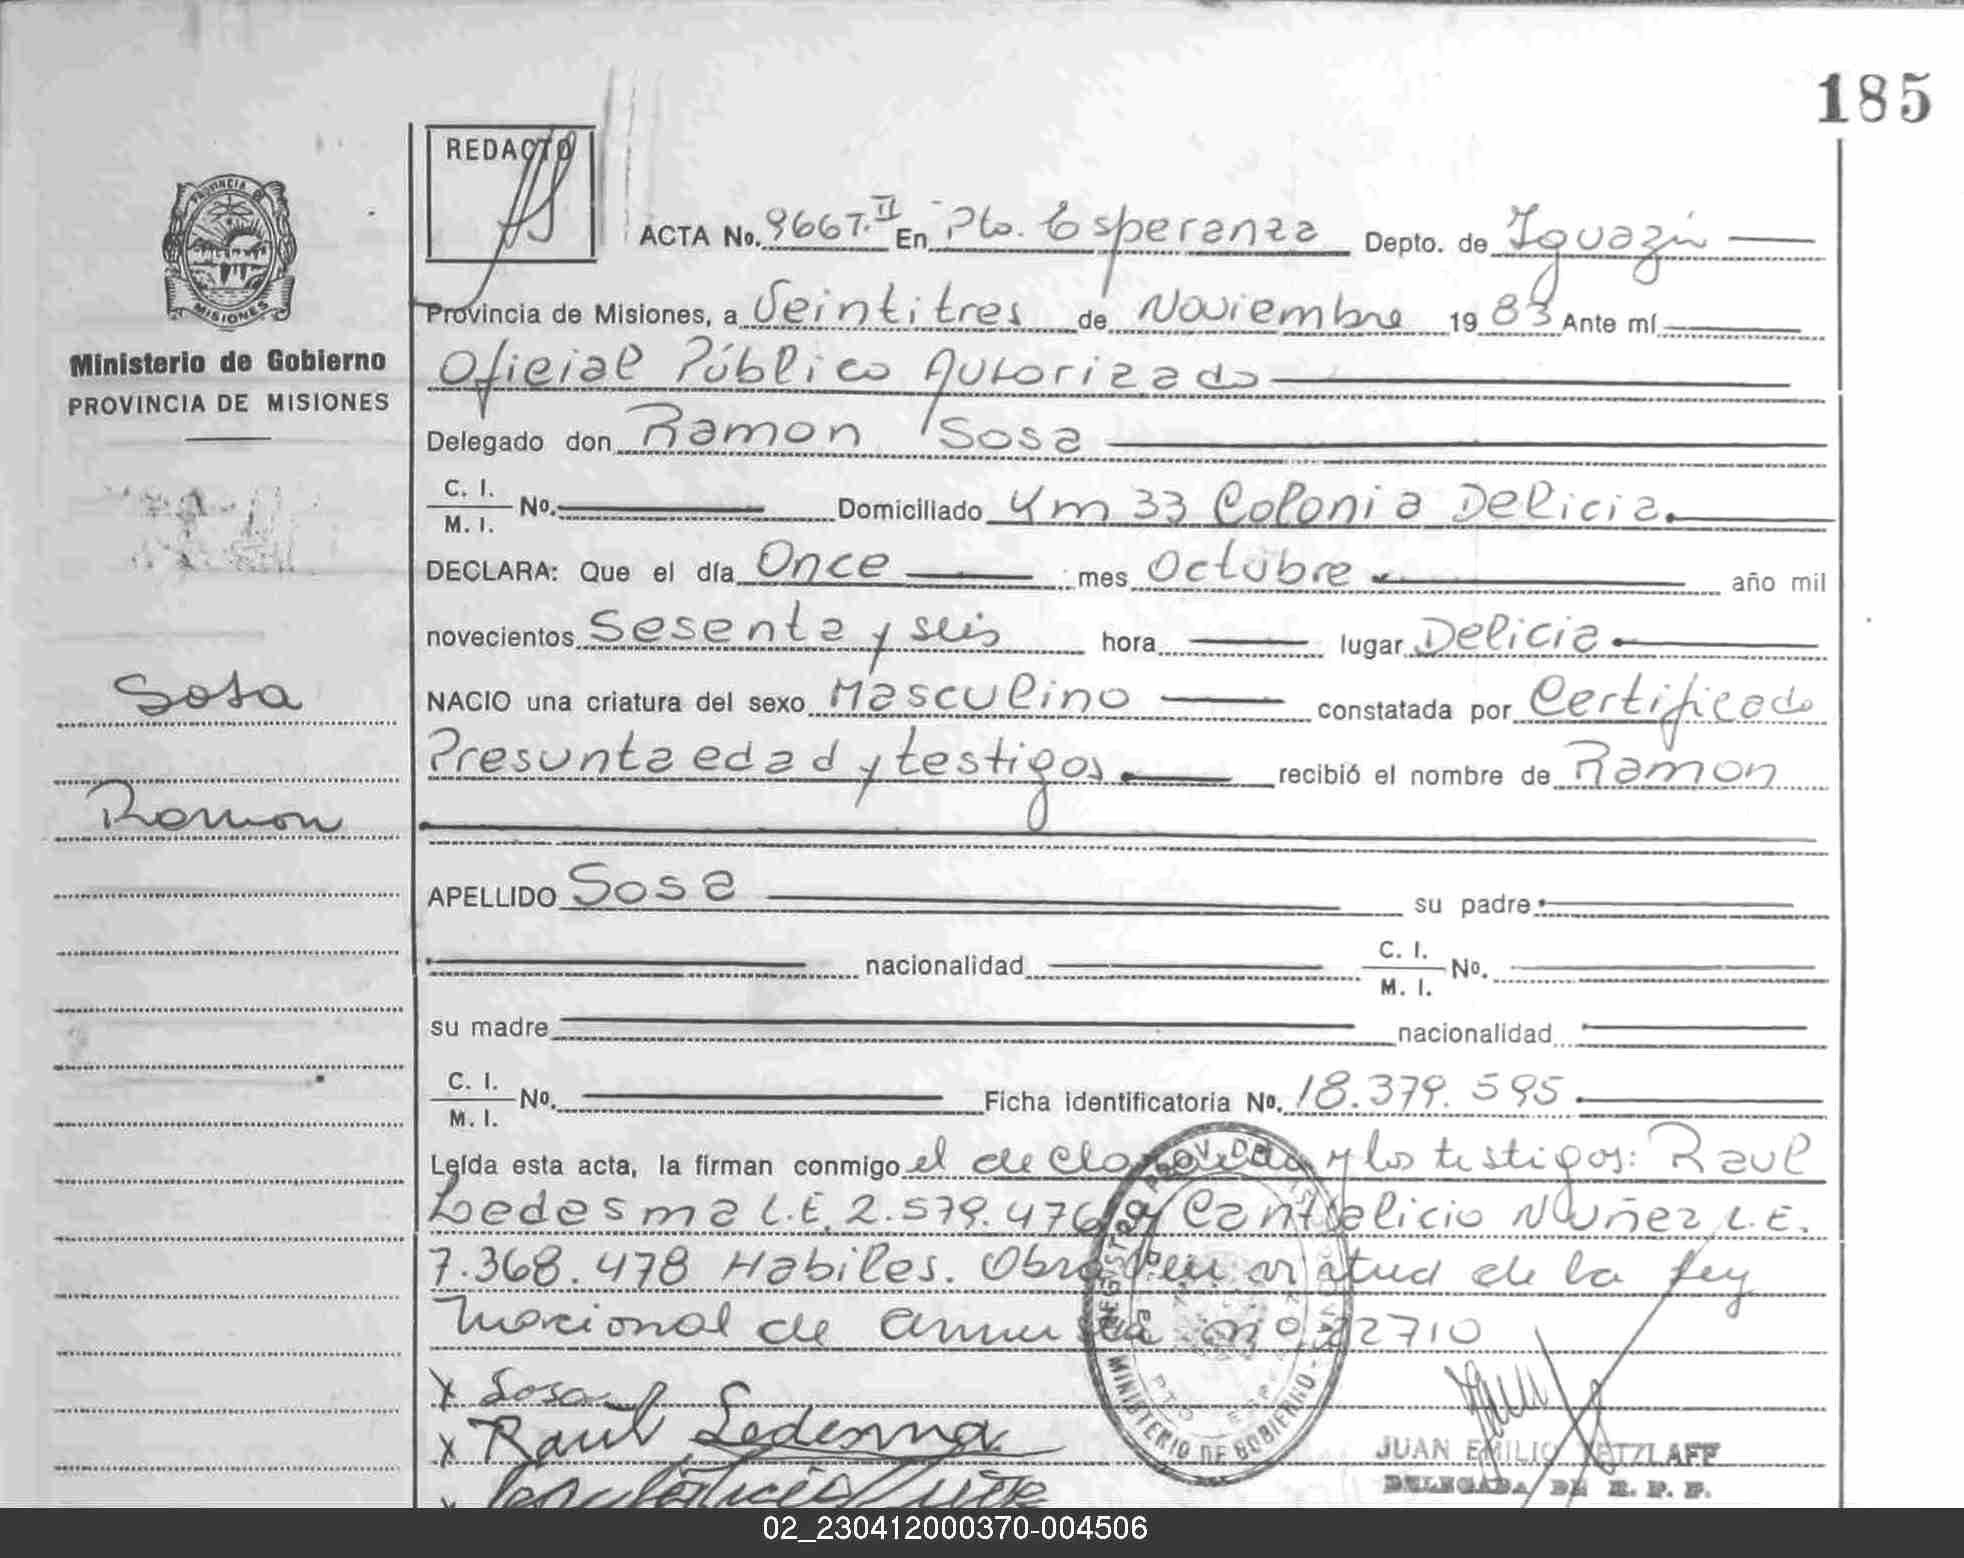 185
REDACTO
ACTA No. 9667.II En Pto. Esperanza Depto. de Iguazú
PROVINCIA DE
MISIONES
Provincia de Misiones, a Veintitres de Noviembre 1983 Ante mí
Ministerio de Gobierno
PROVINCIA DE MISIONES
Oficial Público Autorizado
Delegado don Ramon Sosa
C. I. / M. I. No. Domiciliado Km 33 Colonia Delicia.
DECLARA: Que el día Once mes Octubre año mil
novecientos Sesenta y seis hora lugar Delicia
Sosa
NACIO una criatura del sexo Masculino constatada por Certificado
Presunta edad y testigos recibió el nombre de Ramon
Ramon
APELLIDO Sosa su padre
nacionalidad C. I. / M. I. No.
su madre nacionalidad
C. I. / M. I. No. Ficha identificatoria No. 18.379.595
Leída esta acta, la firman conmigo el declarante y los testigos: Raul
Ledesma L.E. 2.579.476 y Cantalicio Nuñez L.E.
7.368.478 Habiles. Obra en virtud de la ley
Nacional de amnistia no 22710
x Sosa
x Raul Ledesma
REGISTRO PROV. DE LAS PERSONAS
MINISTERIO DE GOBIERNO
PTO. ESP.
JUAN EMILIO RETZLAFF
DELEGADA DE R. P. P.
02_230412000370-004506